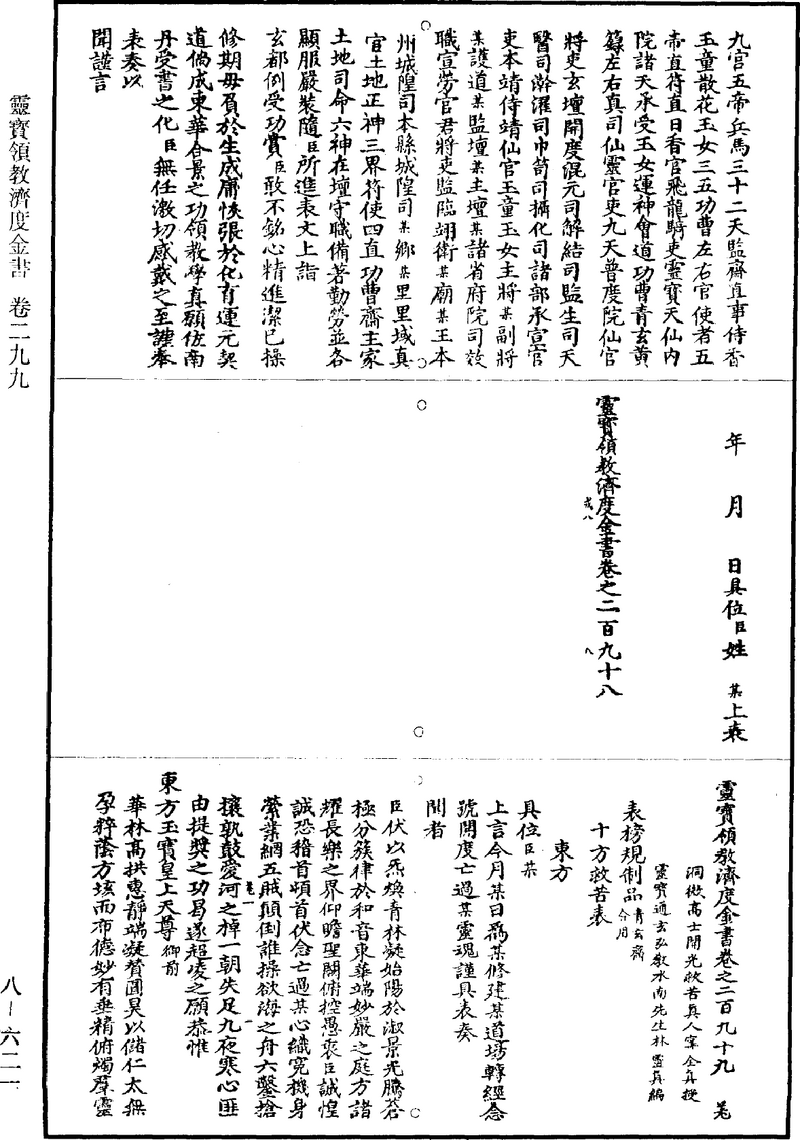 九宮五帝兵馬三十二天監齋直事侍香
玉童散花玉女三五功曹左右官使者五
帝直符直日香官飛龍騎吏靈寶天仙內
院諸天承受玉女運神會道功曹青玄黃
籙左右真司仙靈官吏九天普度院仙官
將吏玄壇開度混元司解結司監生司天
醫司澣濯司巾笥司攝化司諸部承宣官
吏本靖侍靖仙官玉童玉女主將某副將
某護道某監壇某主壇某諸省府院司效
職宣勞官君將吏監臨翊衛某廟某王本
州城隍司本縣城隍司某鄉某里里域真
官土地正神三界符使四直功曹齋主家
土地司命六神在壇守職備著勤勞並各
顯服嚴裝隨臣所進表文上詣
玄都例受功賞臣敢不銘心精進潔已操
修期毋負於生成庸恢張於化育運元契
道倘成東華合景之功領教學真願倣南
丹受書之化臣無任激切感戴之至謹奉
表奏以
聞謹言
年 月 日具位臣姓 某上表
靈寶領教濟度金書卷之二百九十八
戎八
八
靈寶領教濟度金書卷之二百九十九 羌
洞微高士開光救苦真人甯全真授
靈寶通玄弘教水南先生林靈真編
表榜規制品青玄齋今用
十方救苦表
東方
具位臣某
上言今月某日爲某修建某道場轉經念
號開度亡過某靈魂謹具表奏
聞者
臣伏以炁煥青林凝始陽於淑景光騰蒼
極分簇律於和音東華端妙嚴之庭方諸
耀長樂之界仰瞻聖闕俯控愚衷臣誠惶
誠恐稽首頓首伏念亡過某心織寃機身
縈業網五賊顛倒誰操欲海之舟六鑿搶
攘孰鼓愛河之棹一朝失足九夜寒心匪
由提獎之功曷遂超凌之願恭惟
東方玉寶皇上天尊御前
華林高拱惠靜端凝贊圓昊以儲仁太無
孕粹蔭方垓而布德妙有垂精俯燭羣靈
靈寶領教濟度金書 卷二九九
八—六二一